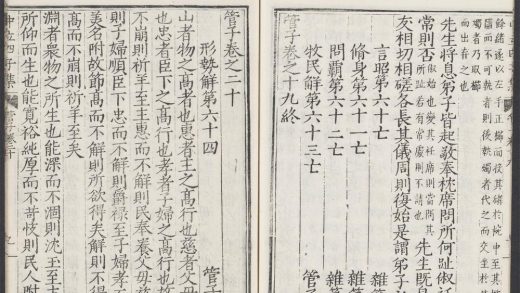 先生將息弟子皆起敬奉枕席問所何趾俶衽
常則否俶始也變其衽席則當問其
所趾若有常處則不請也先生既息
友相切相磋各長其儀周則復始是謂弟子
言昭第六十亡 雜
修身第六十一亡 雜篇
問霸第六十二亡 雜篇
牧民解第六十三亡 管子
管子卷之十九終
管子卷之二十
形埶解第六十四 管子
山者物之高者也惠者主之高行也慈者父母
忠者臣下之高行也孝者子婦之高行也
不崩則祈羊至主惠而不解則民奉養父母
則子婦順臣下忠而不解則爵祿至子婦孝
美名附故節高而不解則所欲得矣解則不得
高而不崩則祈羊至矣
淵者衆物之所生也能深而不涸則沈玉至主
所仰而生也能寬裕純厚而不苛忮則民人附
中立四子集